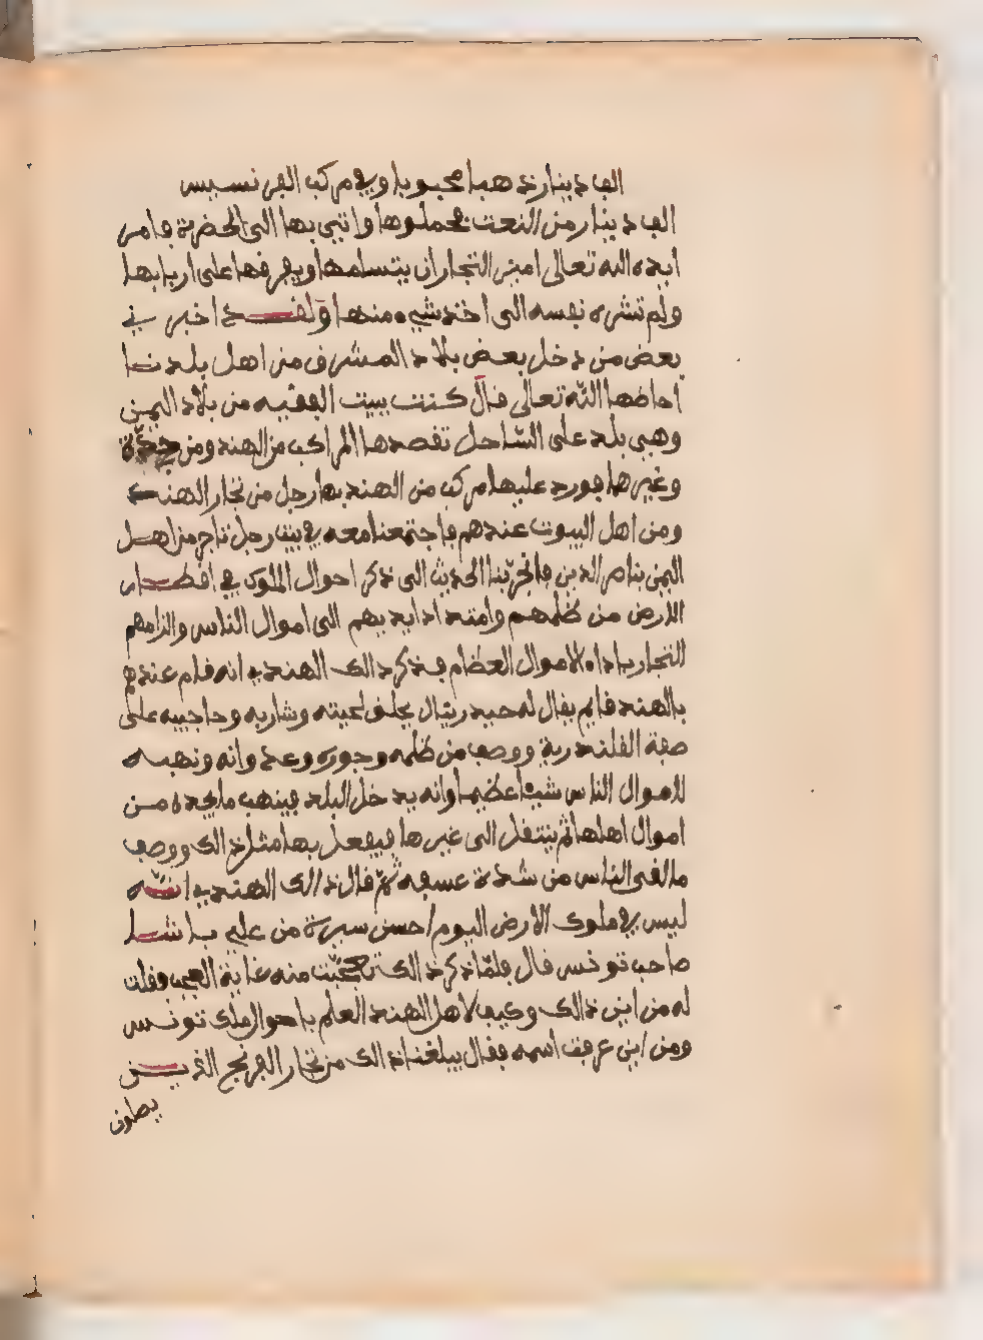 الف دينار ذهبا محبوبا وفي مركب الفرنسيس
الف دينار من النعت فحملوها واتى بها الى الحضرة فامر
ايده الله تعالى امين التجار ان يتسلمها ويفرقها على اربابها
ولم تشره نفسه الى اخذ شيء منها ولقد اخبرني
بعض من دخل بعض بلاد المشرق من اهل بلدنا
احاطها الله تعالى قال كنت ببيت الفقيه من بلاد اليمن
وهي بلد على الساحل تقصدها المراكب من الهند ومن جدّة
وغيرها فورد عليها مركب من الهند بها رجل من تجار الهند
ومن اهل البيوت عندهم فاجتمعنا معه في بيت رجل تاجر من اهل
اليمن بناصر الدين فانجرّ بنا الحديث الى ذكر احوال الملوك في اقطار
الارض من ظلمهم وامتداد ايديهم الى اموال الناس والزامهم
التجار باداء الاموال العظام فذكر ذالك الهندي انه قام عندهم
بالهند قايم يقال له حيدر يحلق لحيته وشاربه وحاجبيه على
صفة القلندرية ووصف من ظلمه وجوره وعدوانه ونهبه
لاموال الناس شيئا عظيما وانه يدخل البلد فينهب ما يجده من
اموال اهلها ثم ينتقل الى غيرها فيفعل بها مثل ذالك ووصف
ما لقى الناس من شدة عسفه ثم قال ذالك الهندي انّه
ليس في ملوك الارض اليوم احسن سيرة من علي باشا
صاحب تونس قال فلمّا ذكر ذالك تعجّبت منه غاية العجب وقلت
له من اين ذالك وكيف لاهل الهند العلم باحوال ملك تونس
ومن اين عرفت اسمه فقال يبلغنا ذالك من تجار الفرنج الذين
يطوف